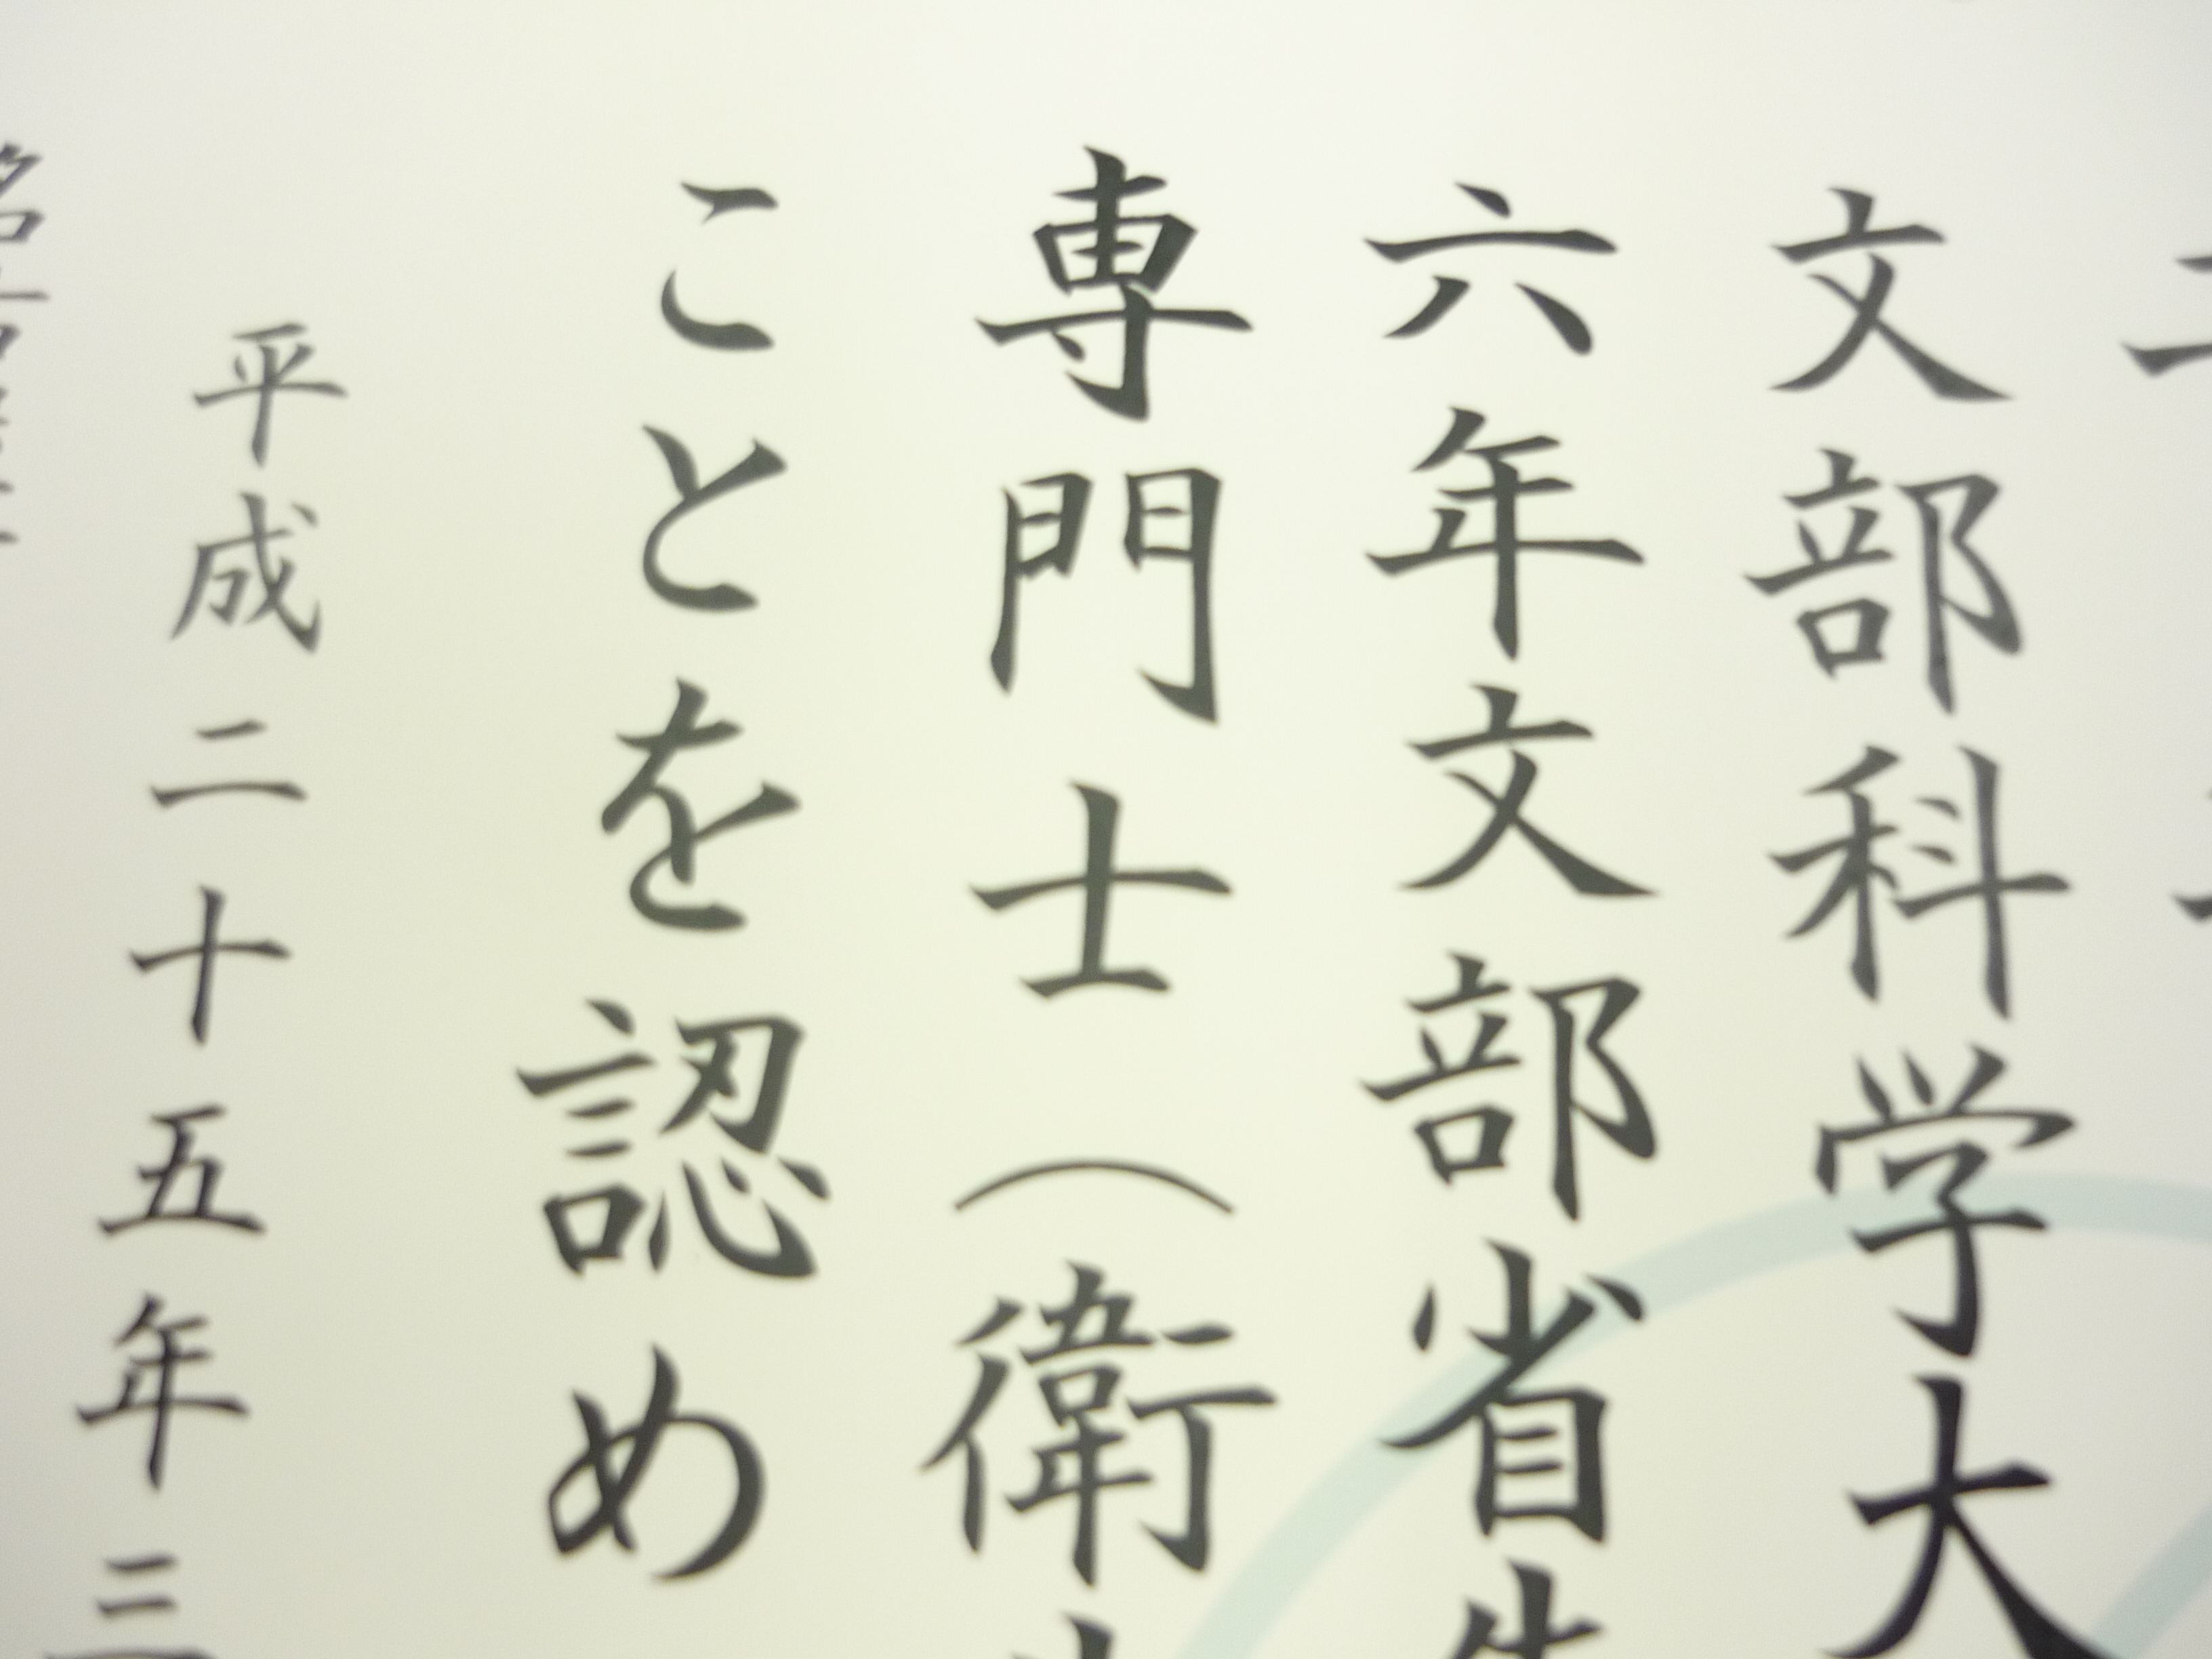 文部科学大
六年文部省告
専門士（衛
ことを認め
平成二十五年三